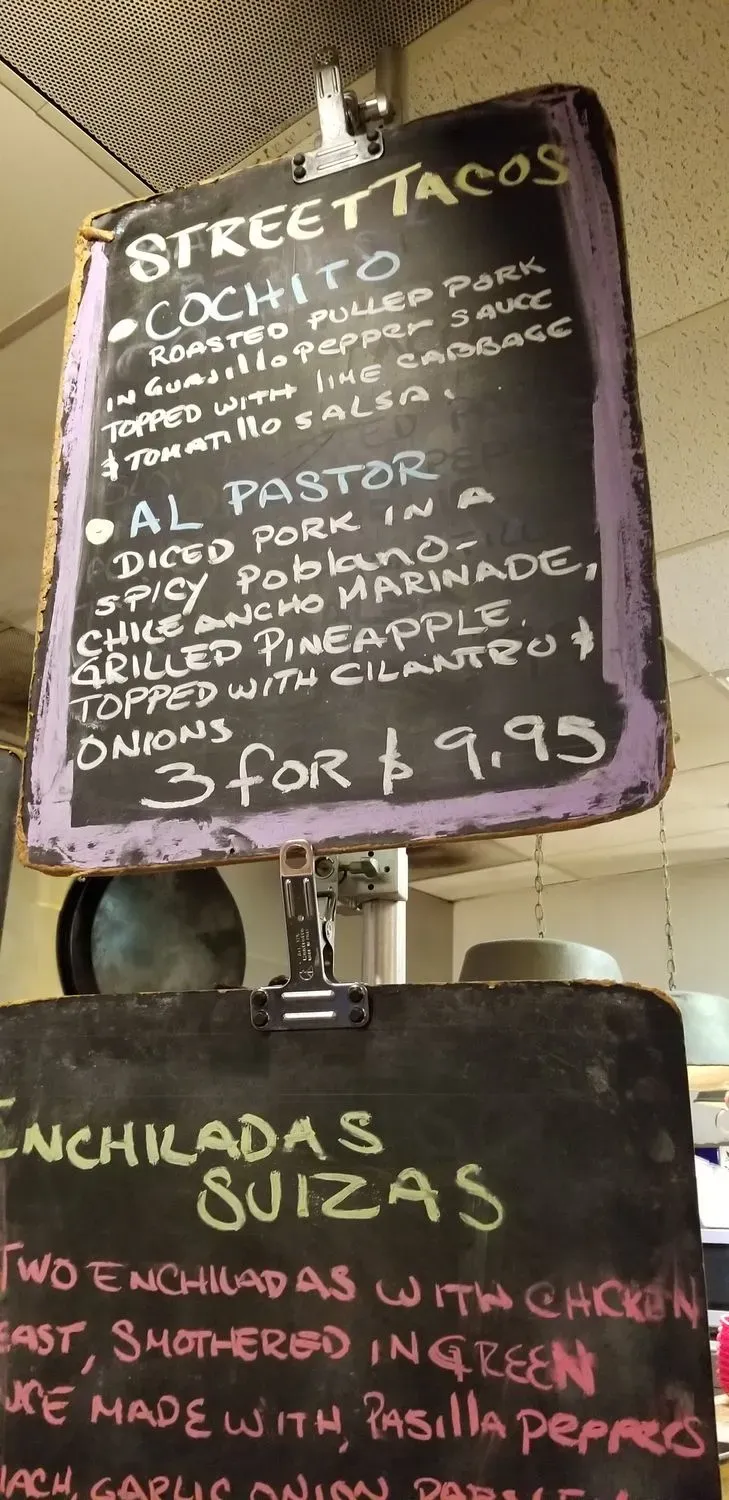 STREET TACOS
• COCHITO
ROASTED PULLED PORK
IN GUAJIllO PEPPER SAUCE
TOPPED WITH lIME CABBAGE
& TOMATIllO SALSA.
• AL PASTOR
DICED PORK IN A
SPICY Poblano-
CHILE ANCHO MARINADE,
GRILLED PINEAPPLE.
TOPPED WITH CILANTRO &
ONIONS
3 fOR $ 9.95
ENCHILADAS
SUIZAS
TWO ENCHILADAS WITH CHICKEN
EAST, SMOTHERED IN GREEN
UCE MADE WITH, PASIlla PEPPERS
NACH, GARLIC ONION